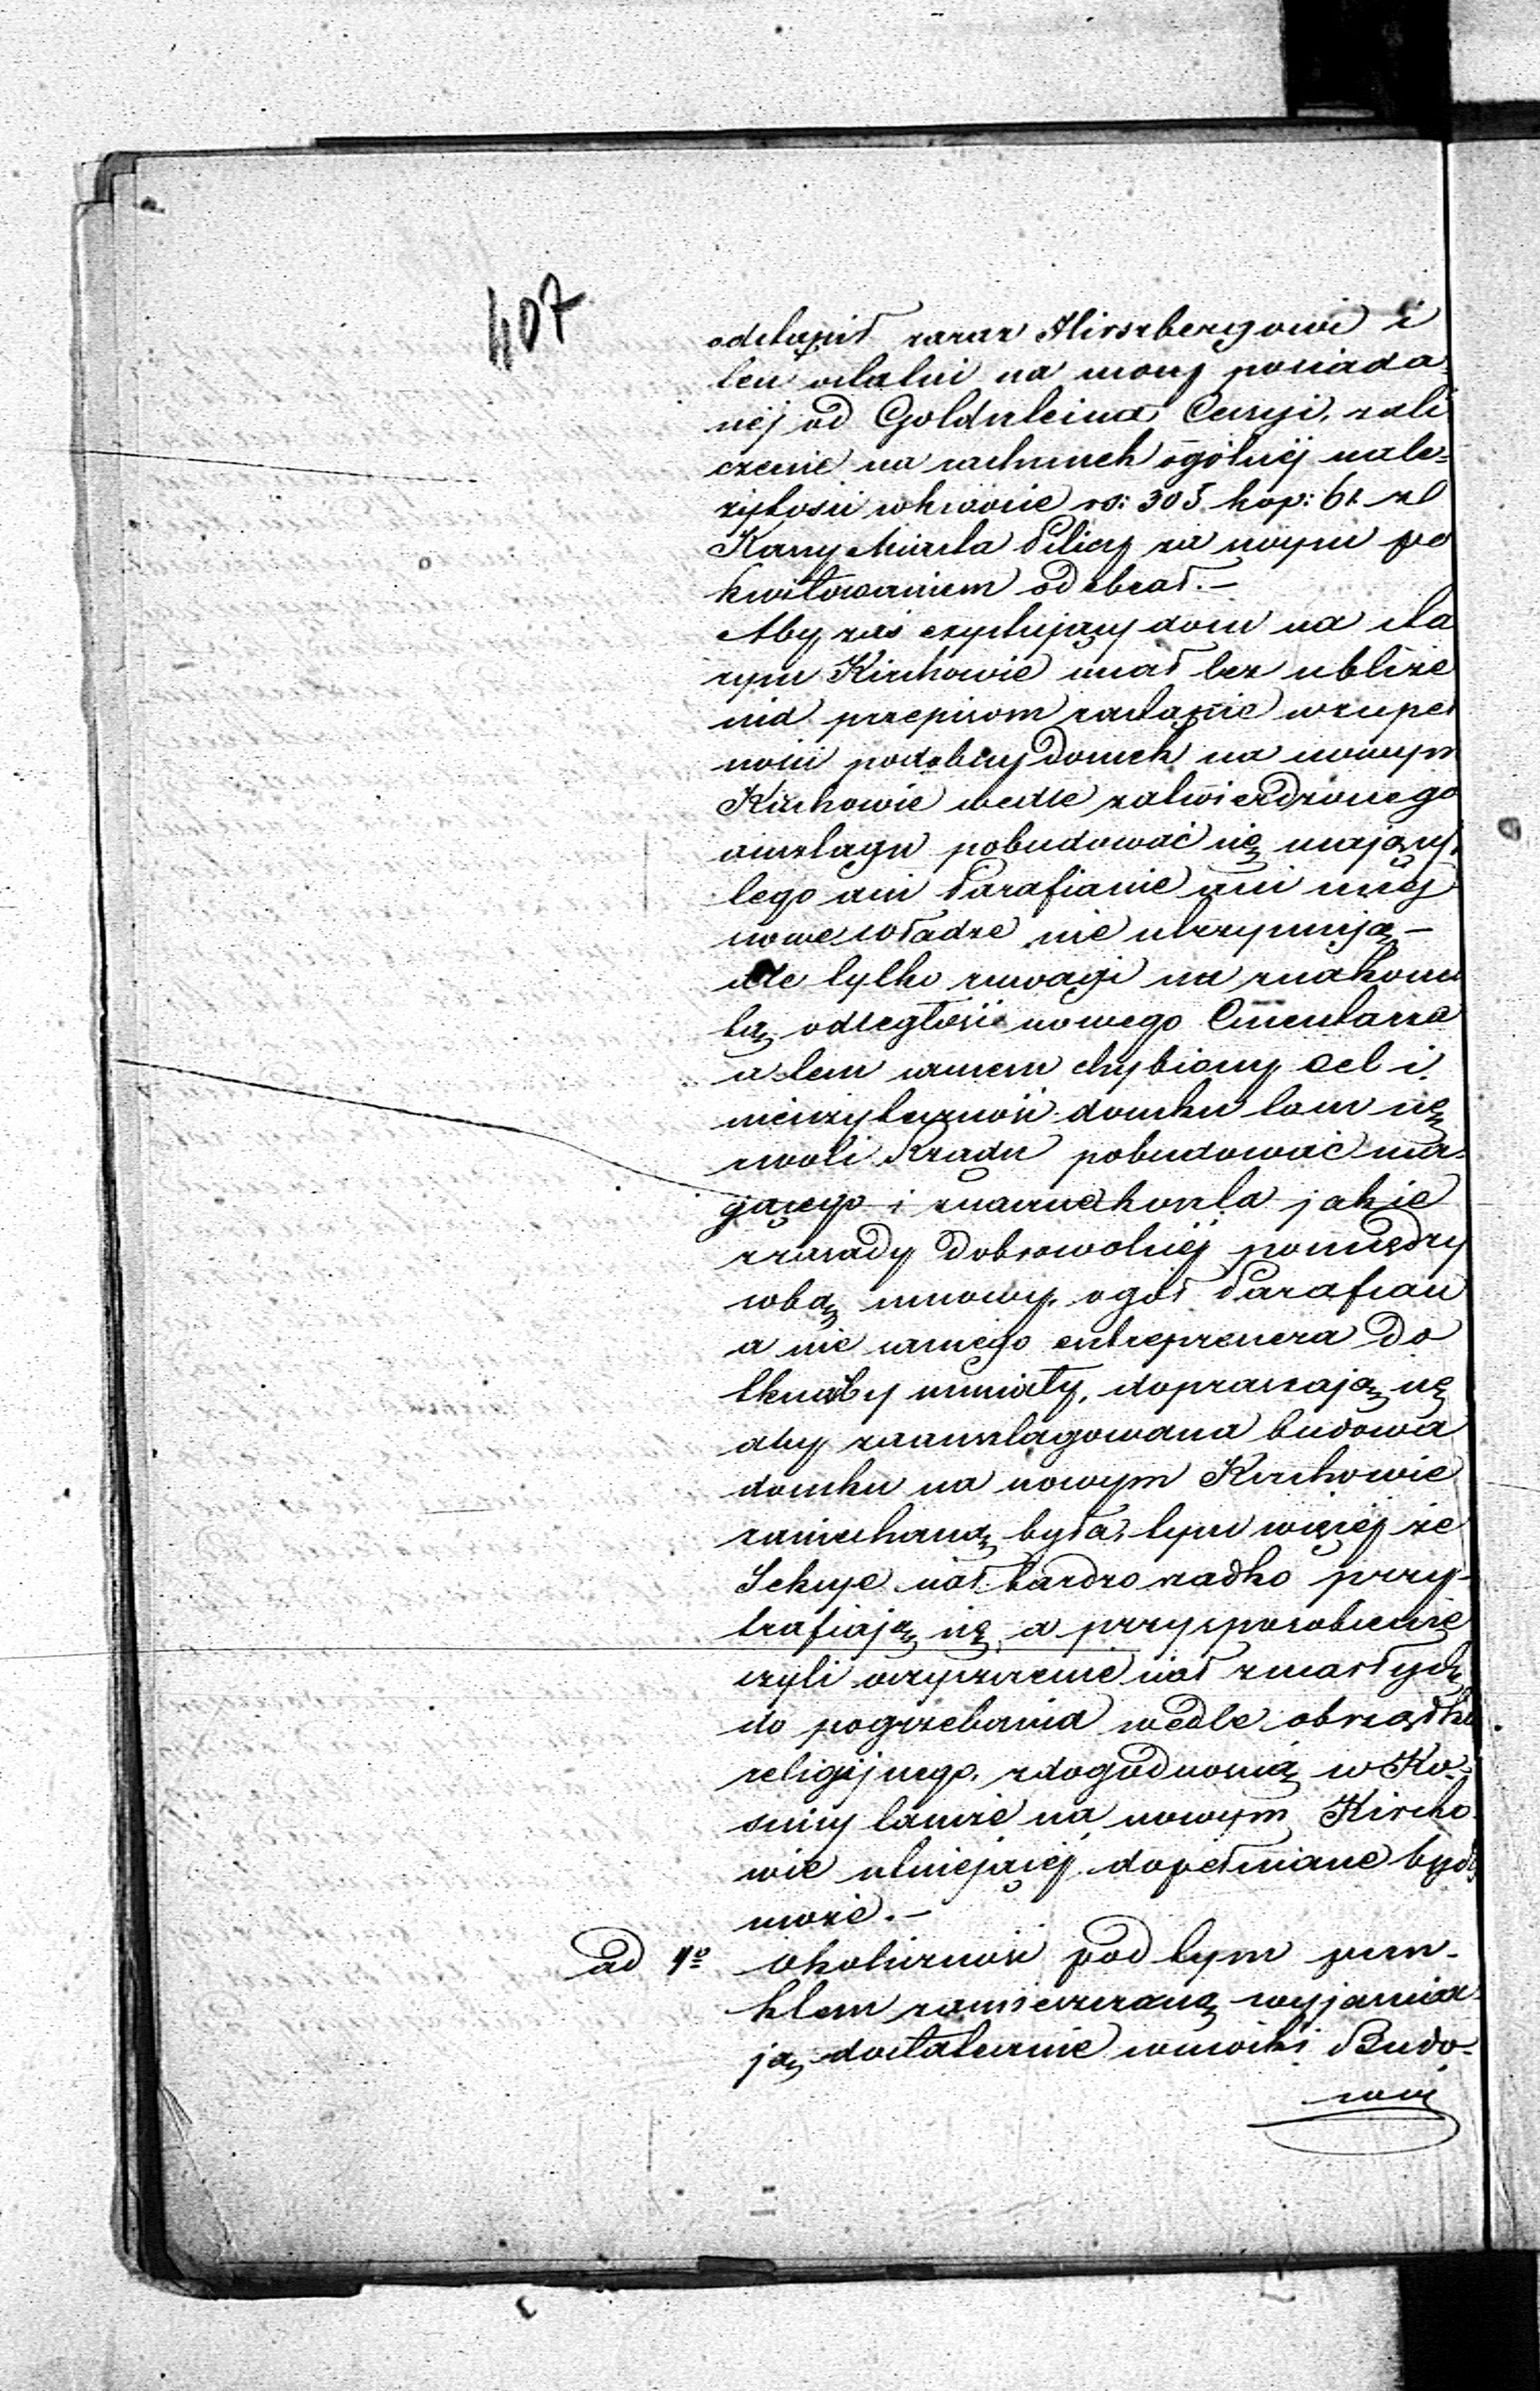 407
odstąpił zaraz Hirszbergowi i
ten ostatni na mocy posiada-
néj od Goldszteina Cessyi, zali
czenie na rachunek ogólnéj nale-
żytości w kwocie rs: 305 kop: 61 z
Kassy Miasta Pilicy za swym po
kwitowaniem odebrał.-
Aby zaś exystujący dom na sta
rym Kirchowie miał bez ubliże
nia przepisom zastąpić w zupeł
ności podobny domek na nowym
Kirchowie wedle zatwierdzonego
anszlagu pobudować się mający,
tego ani Parafianie ani miej
scowe władze nie utrzymują -
ale tylko z uwagi na znakomi
tą odległość nowego Cmentarza
a tem samem chybiony cel i
nieużyteczność domku tam się
z woli Rządu pobudować ma-
jącego i zmarne koszta jakie
z zasady dobrowolnéj pomiędzy
sobą umowy, ogół Parafian
a nie samego entreprenera do
tknąćby musiały, dopraszają się
aby zaanszlagowana budowa
domku na nowym Kirchowie
zaniechaną była, tym więcéj że
Sekcye ciał bardzo rzadko przy-
trafiają się, a przysposobienie
czyli oczyszczenie ciał zmarłych
do pogrzebania wedle obrządku
religijnego, z dogodnością w Ko-
śnicy tamże na nowym Kircho
wie istniejącéj dopełniane być
może.-
ad 4º Okoliczność pod tym pun-
ktem zamieszczoną wyjaśnia-
ją dostatecznie wnioski Budo-
wni